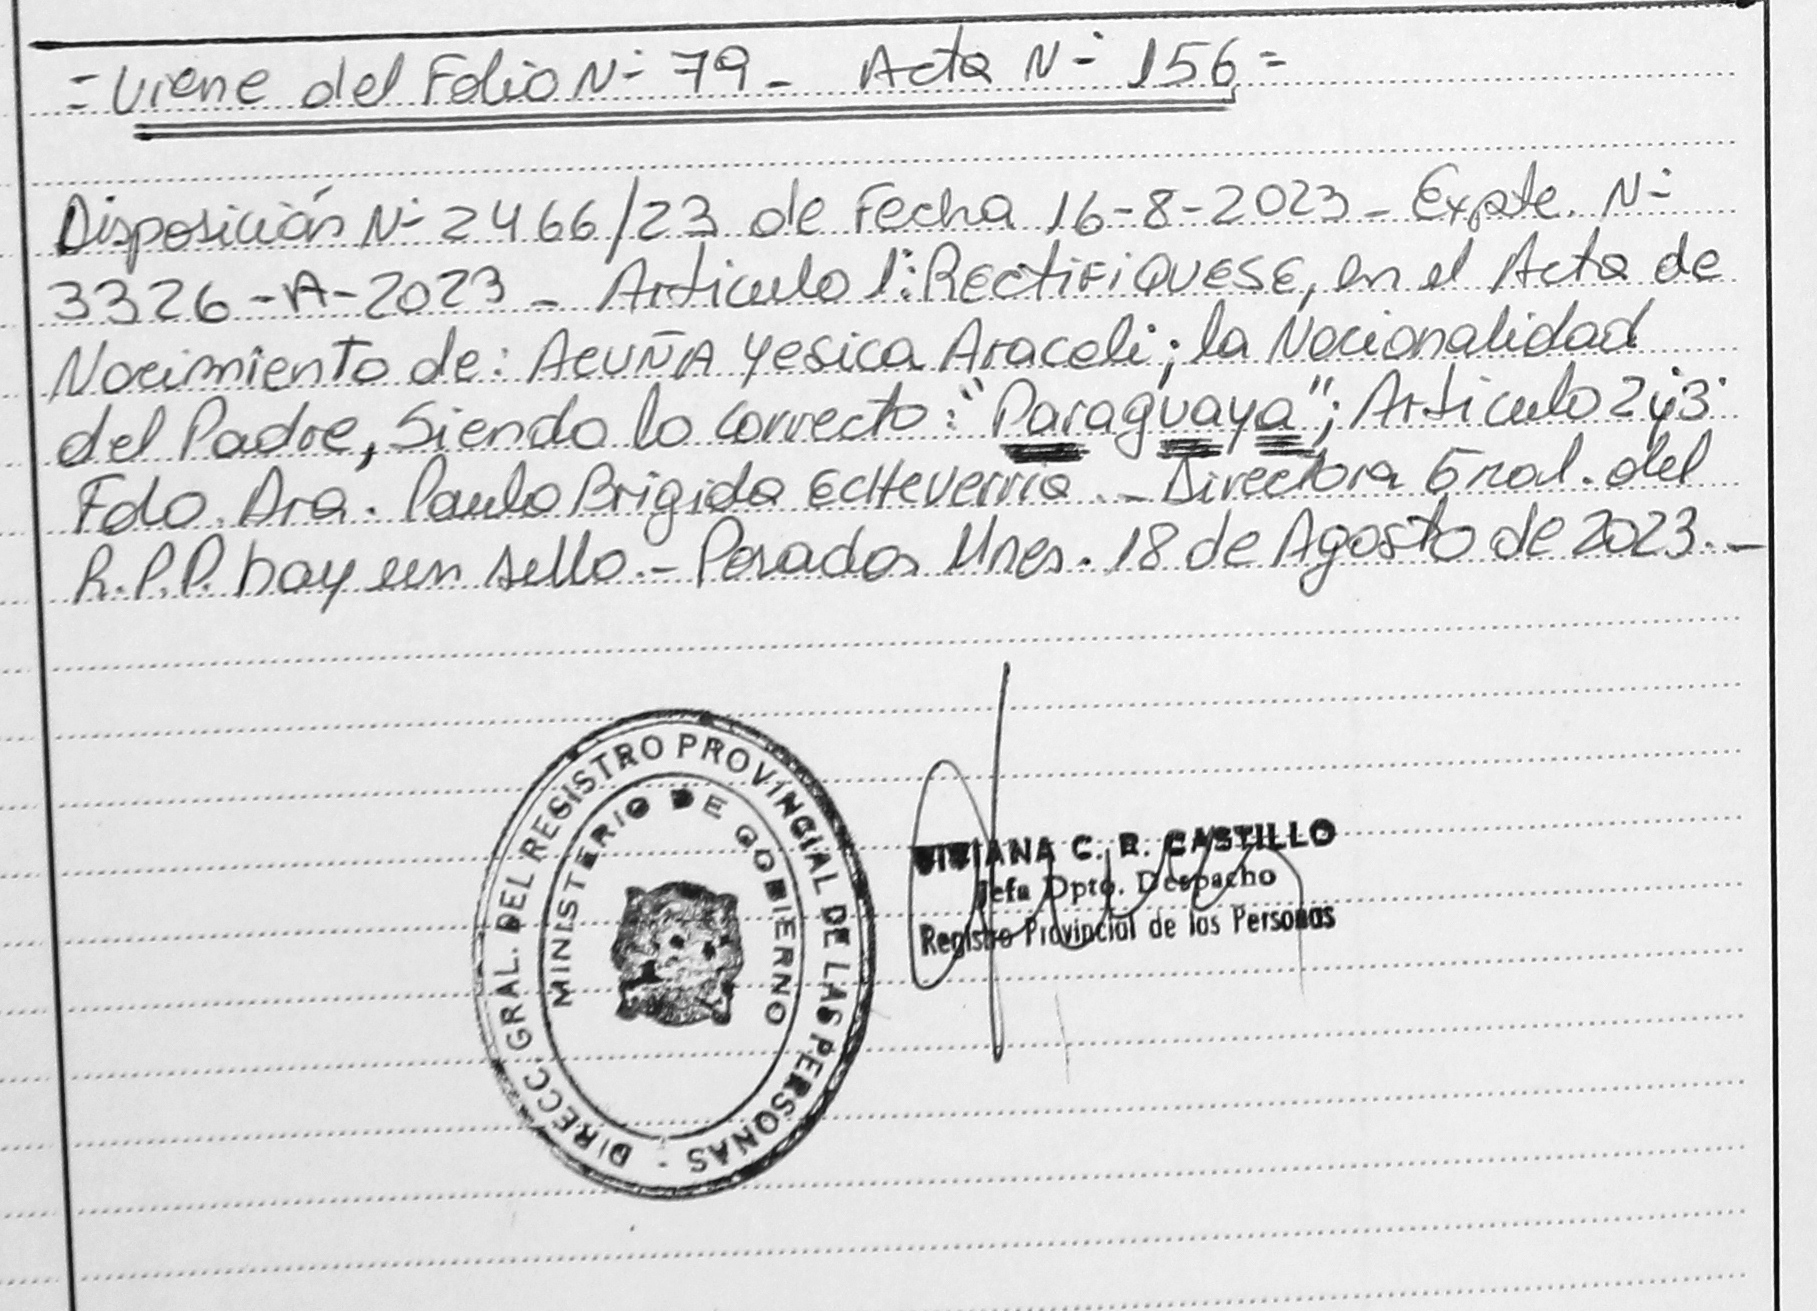 = Viene del Folio Nº 79 - Acta Nº 156 =
Disposición Nº 2466/23 de Fecha 16-8-2023 - Expte. Nº
3326-A-2023 - Articulo 1º: RECTIFIQUESE, en el Acta de
Nacimiento de: ACUÑA Yesica Araceli; la Nacionalidad
del Padre, Siendo lo correcto: "Paraguaya"; Articulo 2 y 3
Fdo. Dra. Paula Brigida Echeverria. - Directora Gral. del
R.P.P. hay un sello. - Posadas Mnes. 18 de Agosto de 2023. -
DIRECC. GRAL. DEL REGISTRO PROVINCIAL DE LAS PERSONAS -
MINISTERIO DE GOBIERNO
C. R. CASTILLO
Jefa Dpto. Despacho
Registro Provincial de las Personas